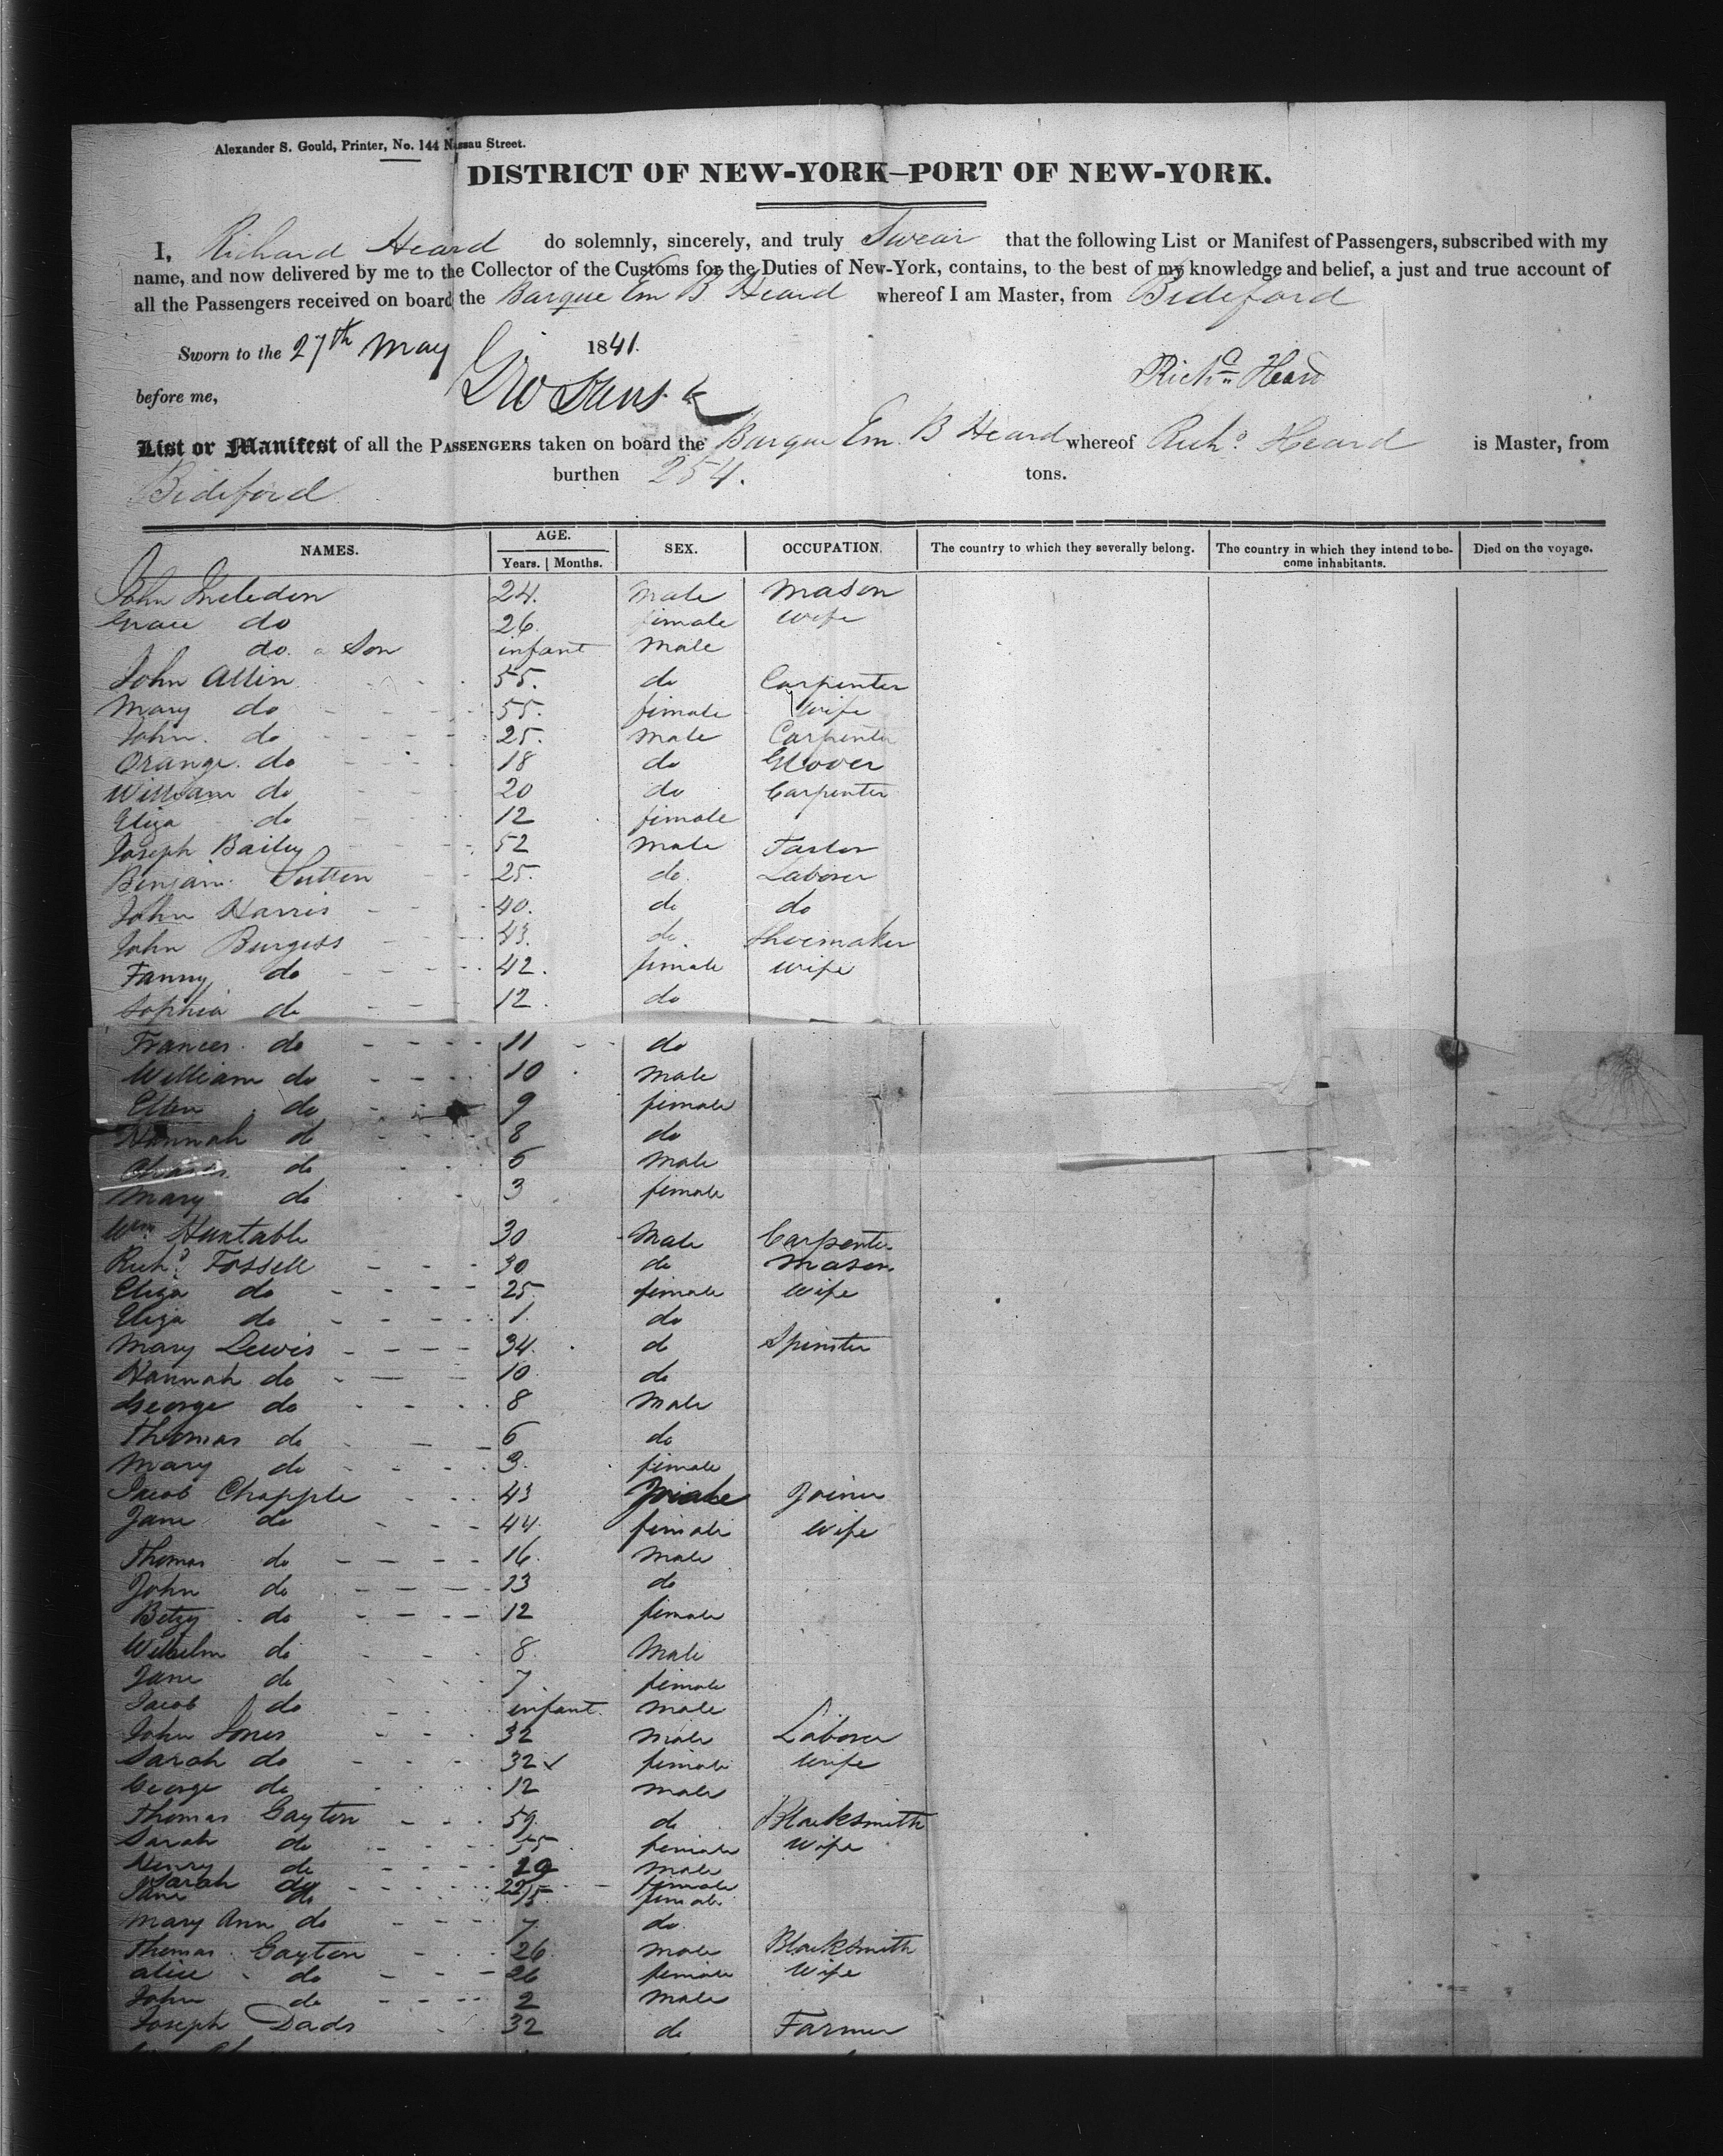 Alexander S. Gould, Printer, No. 144 Nassau Street.
DISTRICT OF NEW-YORK—PORT OF NEW-YORK.
I, Richard Heard do solemnly, sincerely, and truly Swear that the following List or Manifest of Passengers, subscribed with my
name, and now delivered by me to the Collector of the Customs for the Duties of New-York, contains, to the best of my knowledge and belief, a just and true account of
all the Passengers received on board the Barque Em B Heard whereof I am Master, from Bideford
Sworn to the 27th May 1841.
Richd Heard
before me,
List or Manifest of all the PASSENGERS taken on board the Barque Em. B Heard whereof Richd Heard is Master, from
Bideford burthen 254. tons.
NAMES. AGE. Years. Months. SEX. OCCUPATION. The country to which they severally belong. The country in which they intend to become inhabitants. Died on the voyage.
John Incledon 24. male mason
Grace do 26. female wife
do. a Son infant male
John Allin 55. do Carpenter
Mary do 55. female wife
John. do 25. male Carpenter
Orange. do 18 do Glover
William do 20 do Carpenter
Eliza do 12 female
Joseph Bailey 52 male
Benjam. Sutten 25. do. Laborer
John Harris 40. do do
John Burgess 43. do. Shoemaker
Fanny do 42. female wife
Sophia do 12. do
Frances. do 11 do
William do 10 male
Ellen do 9 female
Hannah do 8 do
Charles do 6 male
Mary do 3 female
Wm Huxtable 30 Male Carpenter
Richd Fossell 30 do mason
Eliza do 25. female wife
Eliza do 1. do
Mary Lewis 34. do Spinster
Hannah do 10 do
George do 8 male
Thomas do 6 do
Mary do 3. female
Jacob Chapple 43 male Joiner
Jane do 44 female wife
Thomas do 16. male
John do 13 do
Betzy. do 12 female
do 8. male
Jane do 7 female
Jacob do infant. male
John Jones 32 male Laborer
Sarah do 32 female wife
George do 12 male
Thomas Gayton 59. do Blacksmith
Sarah do 55 female wife
Henry do 29 male
Sarah do 22 female
Jane do 15 female
Mary Ann do 7 do.
Thomas. Gayton 26. male Blacksmith
Alice do 26 female Wife
John do 2 male
Joseph Dads 32 do Farmer